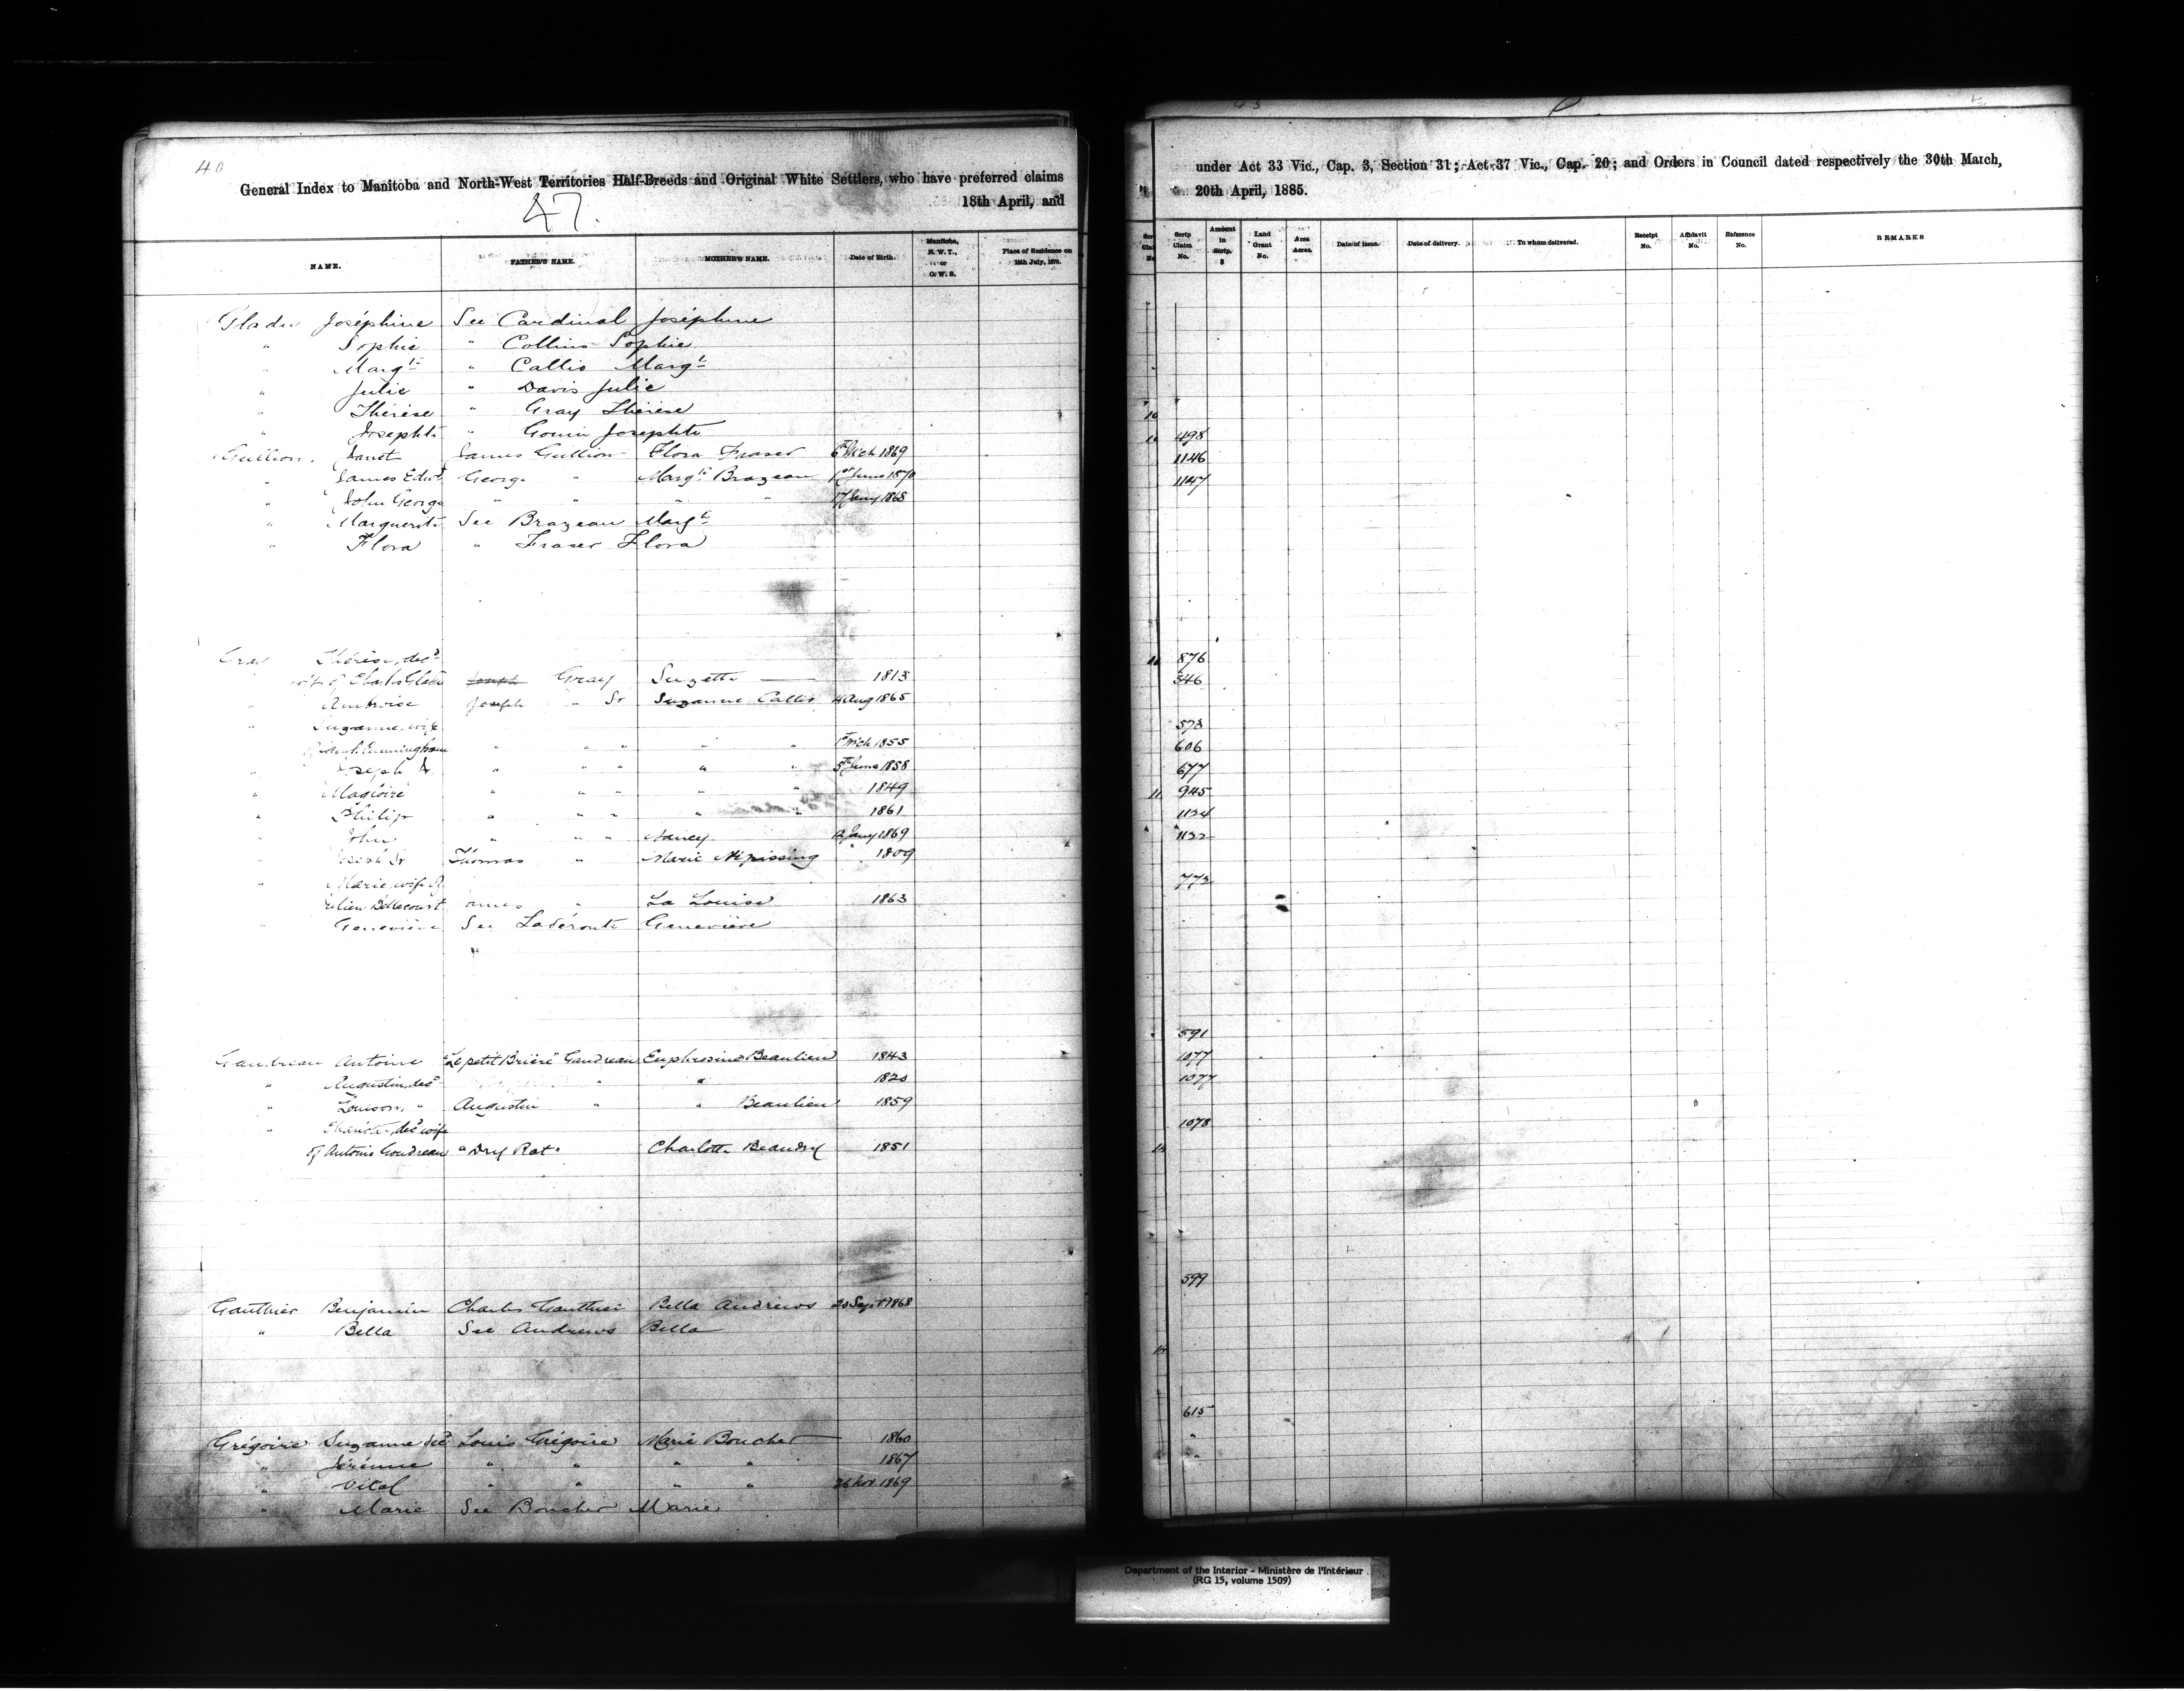 40
General Index to Manitoba and North-West Territories Half-Breeds and Original White Settlers, who have preferred claims
18th April, and
47.
NAME. FATHER'S NAME. MOTHER'S NAME. Date of Birth. Manitoba, N. W. T., or O. W. S. Place of Residence on 15th July, 1870.
Gladu Joséphine See Cardinal Joséphine
" Sophie " Collins Sophie
" Margte " Callis Margt
" Julie " Davis Julie
" Thérèse " Gray Thérèse
" Josephte " Gouin Josephte
Gullion Janet James Gullion Flora Fraser 6th Mch 1869
" James Edwd George " Margte Brazeau 1st June 1870
" John George " " " " 17 Jany 1868
" Marguerite See Brazeau Margte
" Flora " Fraser Flora
Gray Thérèse, decd
wife of Charles Gladu Joseph Gray Suzette 1813
" Ambroise Joseph " Sr Suzanne Callis 4 Aug 1865
" Suzanne, wife
of Cunningham " " " " " 1st Mch 1855
" Joseph Jr " " " " " 5th June 1858
" Magloire " " " " " 1849
" Philip " " " " " 1861
" John " " " Nancy 12 Jany 1869
" Joseph Sr Thomas " Marie Nipissing 1809
" Marie, wife of
Julien Bellecourt James " La Louise 1863
" Geneviève See Laderoute Geneviève
"
Gaudreau Antoine "Le petit Brière" Gaudreau Euphrosine Beaulieu 1843
" Augustin, decd " " 1820
" Louison, " Augustin " " Beaulieu 1859
" Charlotte, decd wife
of Antoine Goudreau "Dry Rat" Charlotte Beaudry 1851
Gauthier Benjamin Charles Gauthier Bella Andrews 20 Sept 1868
" Bella See Andrews Bella
Grégoire Suzanne decd Louis Grégoire Marie Boucher 1860
" Jérémie " " " " 1867
" Vital " " " " 26 Nov. 1869
" Marie See Boucher Marie
under Act 33 Vic., Cap. 3, Section 31; Act 37 Vic., Cap. 20; and Orders in Council dated respectively the 30th March,
20th April, 1885.
Scrip Claim No. Amount in Scrip. $ Land Grant No. Area Acres. Date of issue. Date of delivery. To whom delivered. Receipt No. Affidavit No. Reference No. REMARKS
498
1146
1147
876
346
573
606
677
945
1124
1122
773
591
1077
1077
1078
599
615
"
"
Department of the Interior - Ministère de l'Intérieur
(RG 15, volume 1509)